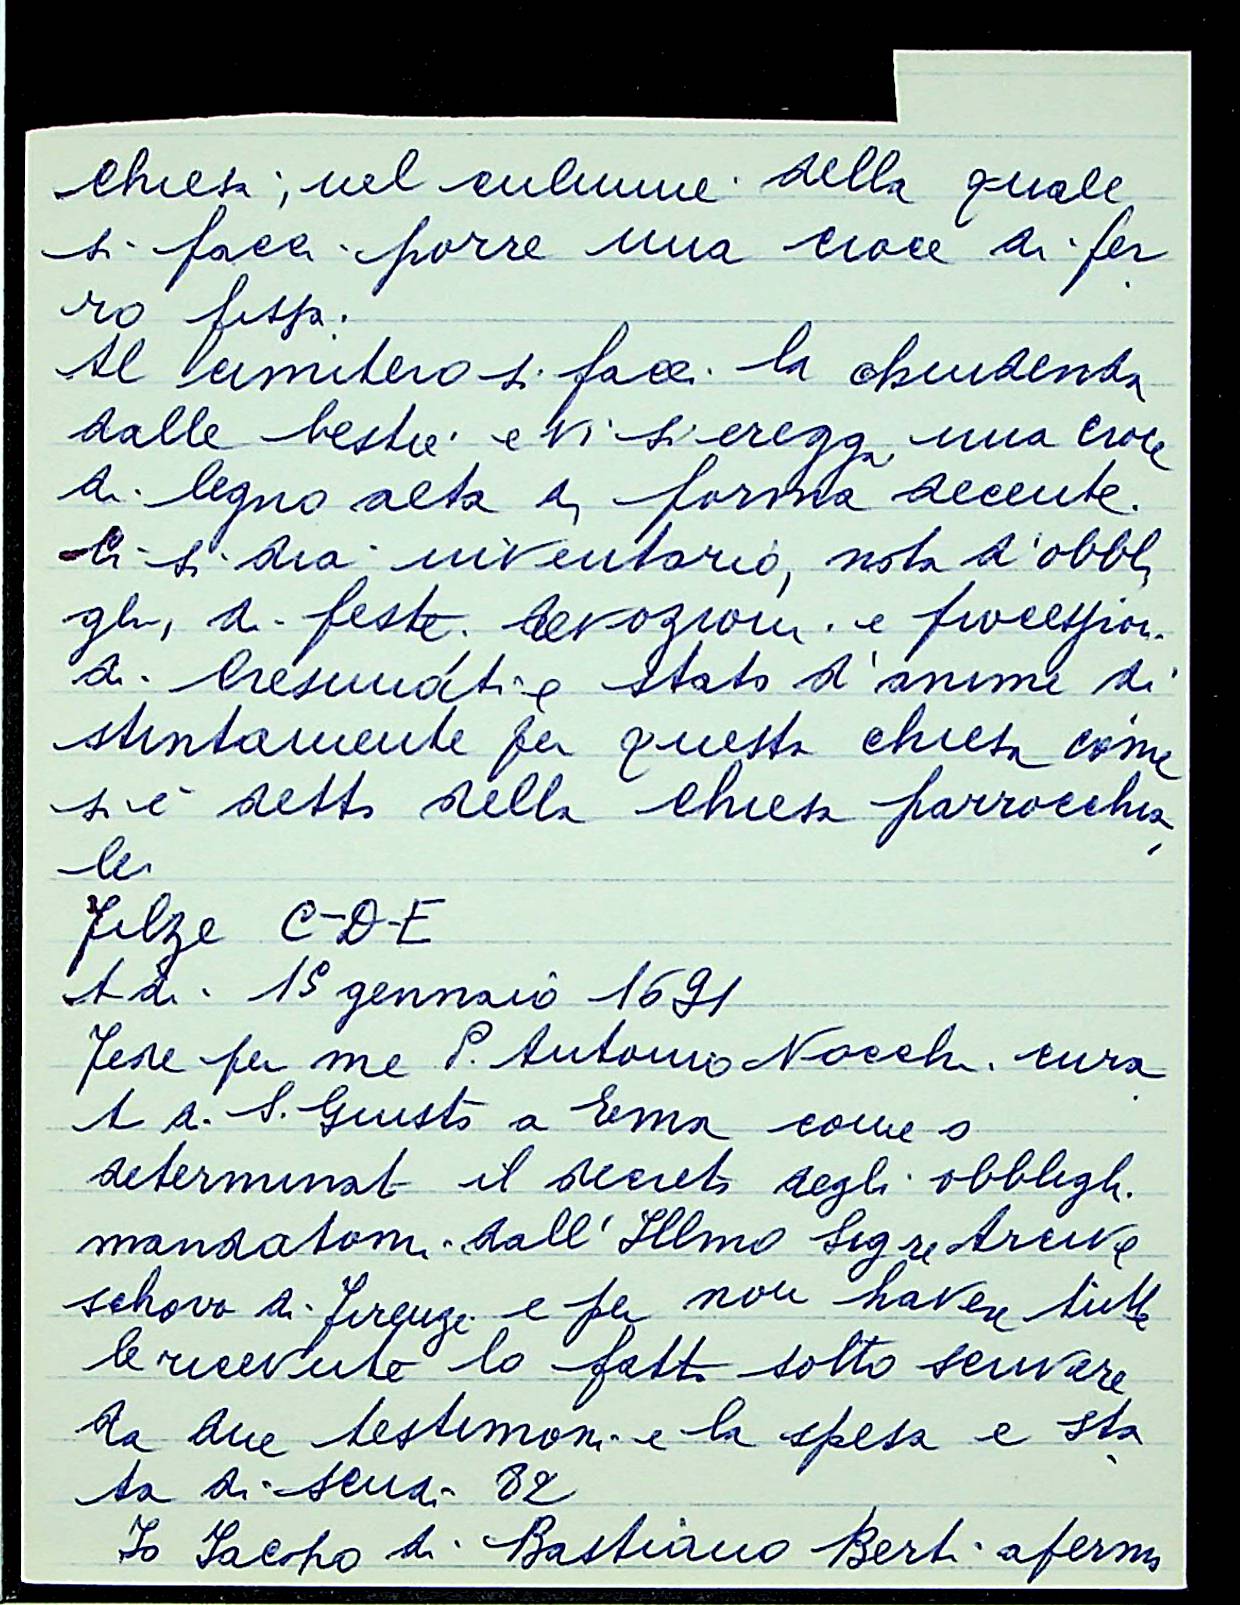 chiesa; nel culmine della quale
si facci porre una croce di fer
ro fissa.
Al Cimitero si facci la chiudenda
dalle bestie e vi si eregga una croce
di legno alta di forma decente.
Ci si dia inventario, nota d'obbli
ghi, di feste devozioni e processioni
di Cresimati e stato d'anime di
stintamente per questa chiesa come
si è detto della Chiesa parrocchia
le.
Filze C-D-E
A di 15 gennaio 1691
Fede per me P. Antonio Nocchi cura
to di S. Giusto a Ema come o
determinato il decreto degli obblighi
mandatomi dall' Illmo Sigre Arcive
schovo di Firenze e per non havere tutte
le ricevute lo fatto sotto scrivare
da due testimoni e la spesa e sta
ta di scudi 82
Io Jacopo di Bastiano Berti afermo